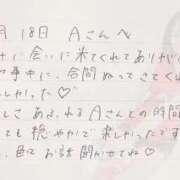 月18日 Aさんへ
に会いに来てくれてありがと
事中に、合間ぬってきてくれ
しかった♡
しさあふれるAさんとの時間
ても穏やかで楽しかったです
、色々お話聞かせてね♡